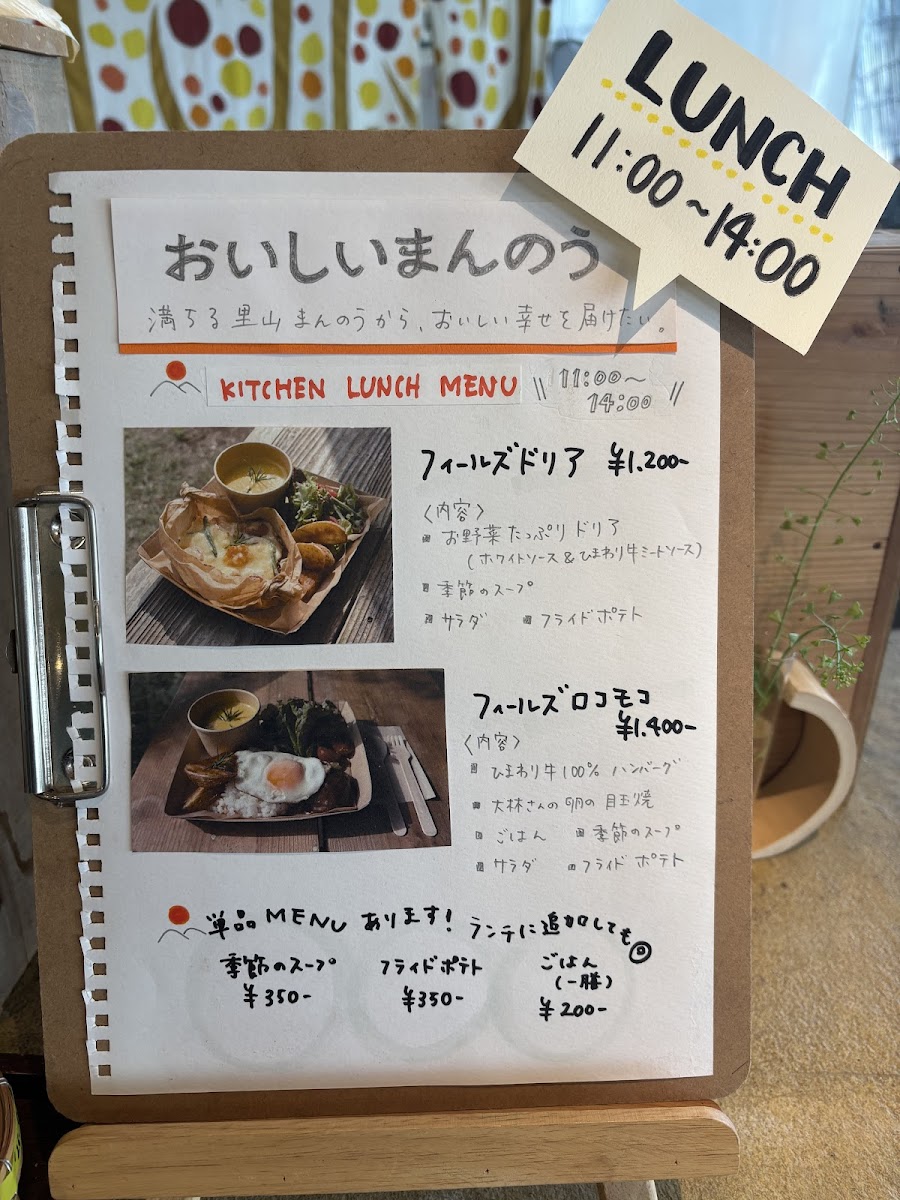 LUNCH
11:00~14:00
おいしいまんのう
満ちる里山まんのうから、おいしい幸せを届けたい。
KITCHEN LUNCH MENU
11:00~
14:00
フィールズドリア ¥1.200-
〈内容〉
お野菜たっぷりドリア
(ホワイトソース&ひまわり牛ミートソース)
季節のスープ
サラダ フライドポテト
フィールズロコモコ
¥1.400-
〈内容〉
ひまわり牛100% ハンバーグ
大林さんの卵の目玉焼
ごはん 季節のスープ
サラダ フライドポテト
単品MENUあります! ランチに追加しても◎
季節のスープ フライドポテト ごはん
(一膳)
¥350- ¥350- ¥200-